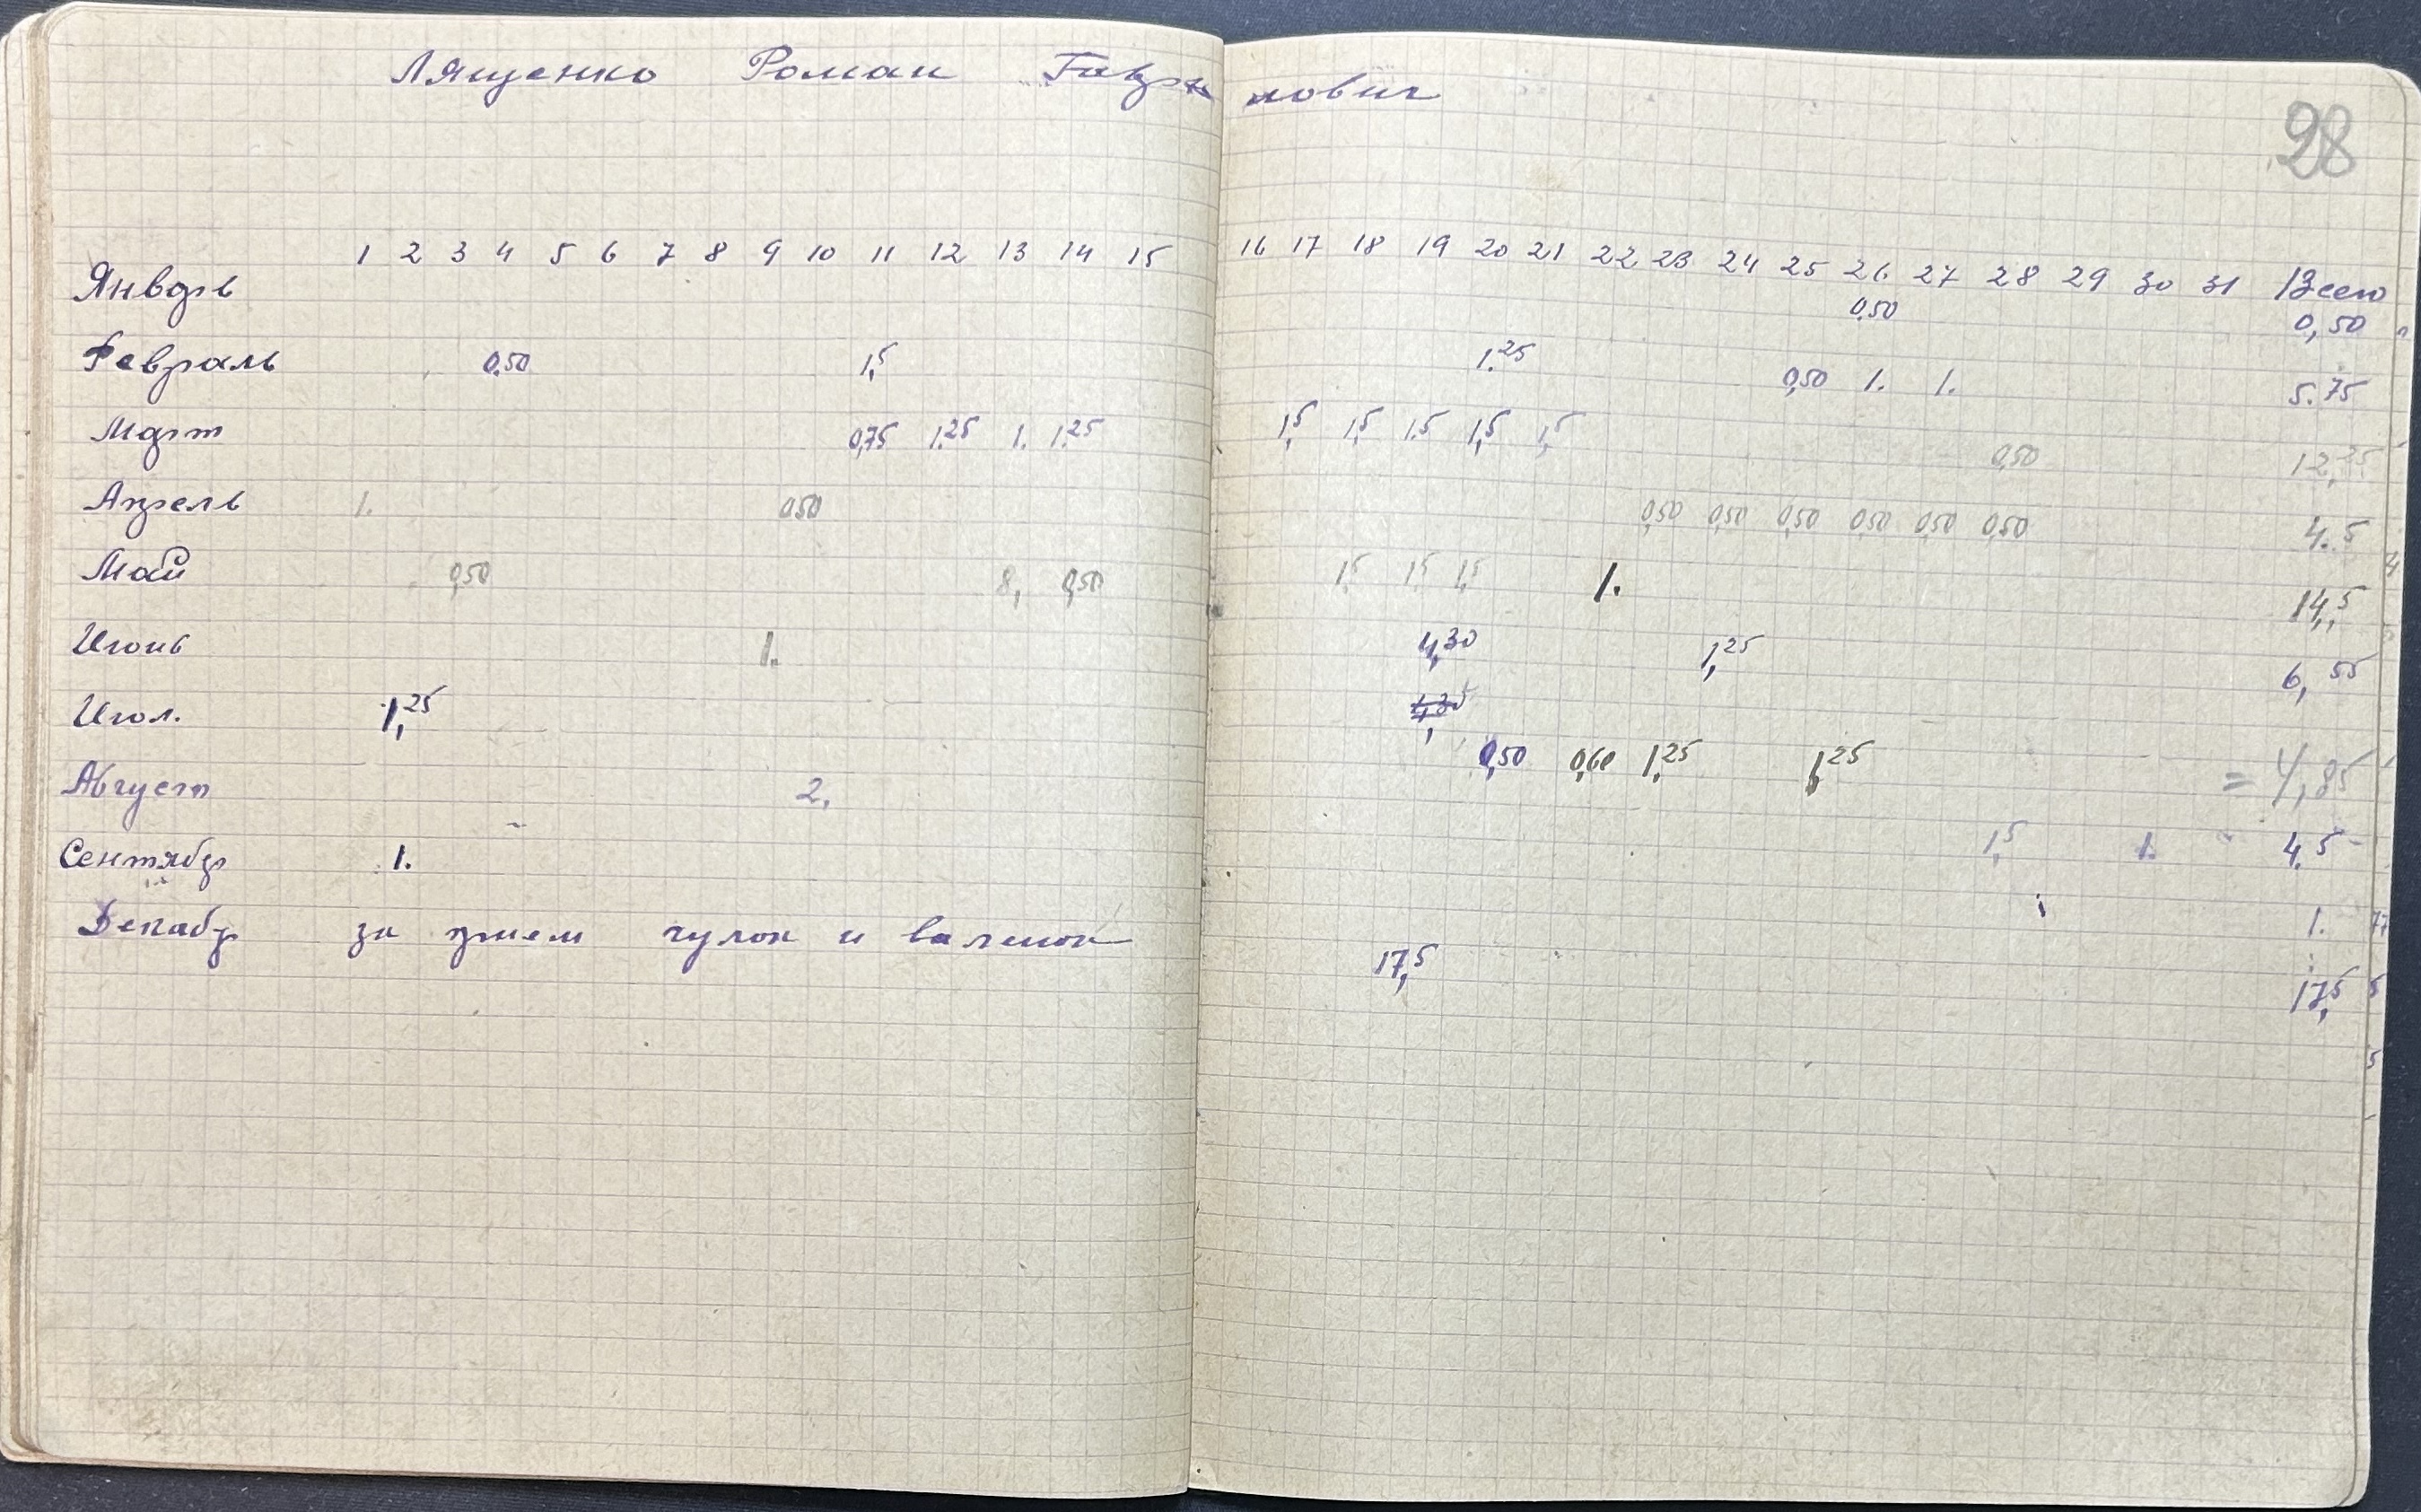 Лященко Роман Гаври лович
28
1 2 3 4 5 6 7 8 9 10 11 12 13 14 15 16 17 18 19 20 21 22 23 24 25 26 27 28 29 30 31 Всего
Январь 0,50 0,50
Февраль 0.50 1,5 1.25 0,50 1. 1. 5.75
Март 0,75 1.25 1. 1.25 1,5 1,5 1.5 1,5 1,5 0,50 12,25
Апрель 1. 0,50 0,50 0,50 0,50 0,50 0,50 0,50 4.5
Май 0,50 8, 0,50 1,5 1,5 1,5 1. 14,5
Июнь 1. 4,30 1,25 6,55
Июл. 1,25 0,50 0,60 1,25 1,25 = 4,85
Август 2. 1,5 1. 4.5
Сентябр 1. 1.
Декабр за прием чулок и валенок 17,5 17,5